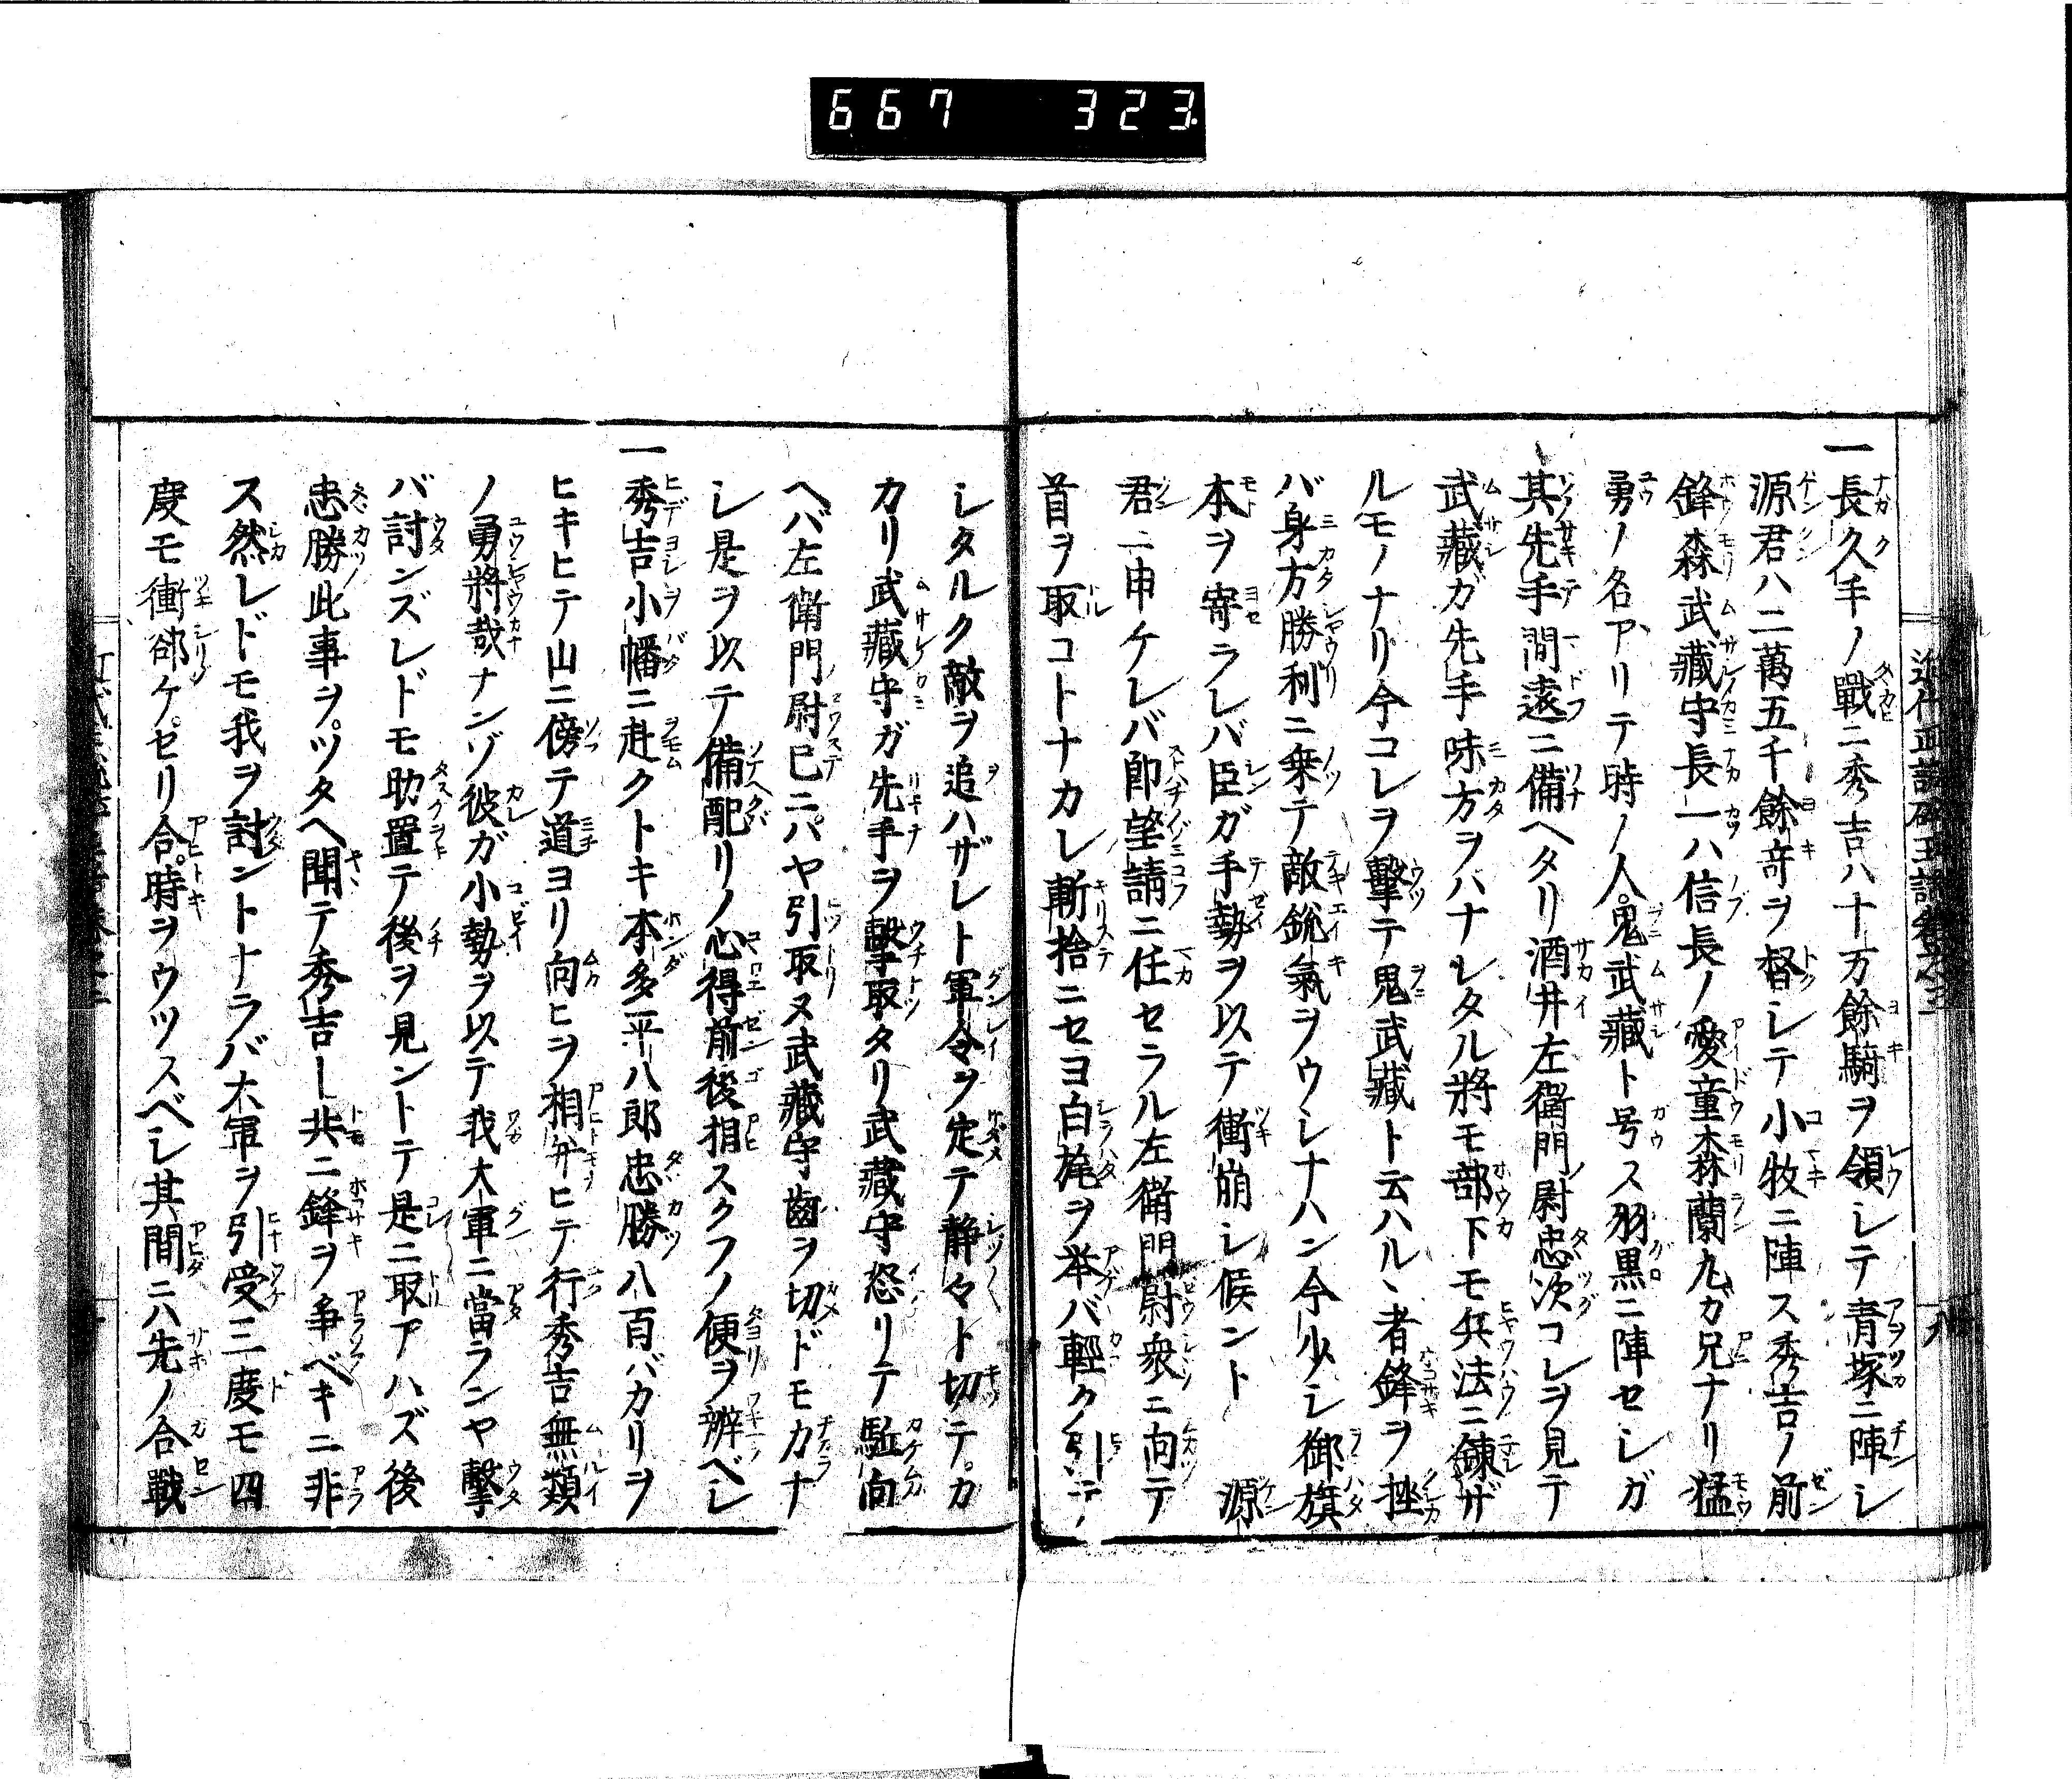 667 323
一長久手ノ戰ニ秀吉八十万餘騎ヲ領シテ青塚ニ陣シ
源君ハ二萬五千餘竒ヲ督シテ小牧ニ陣ス秀吉ノ前
鋒森武藏守長一ハ信長ノ愛童森蘭丸カ兄ナリ猛
勇ノ名アリテ時ノ人鬼武藏ト号ス羽黒ニ陣セシガ
其先手間遠ニ備ヘタリ酒井左衞門ノ尉忠次コレヲ見テ
武藏ガ先手味方ヲハナレタル將モ部下モ兵法ニ錬ザ
ルモノナリ今コレヲ擊テ鬼武藏ト云ハルヽ者鋒ヲ挫
バ身方勝利ニ乗テ敵鋭氣ヲウシナハン今少シ御旗
本ヲ寄ラレバ臣ガ手勢ヲ以テ衝崩シ候ント 源
君ニ申ケレバ即望請ニ任セラル左衞門尉衆ニ向テ
首ヲ取コトナカレ斬捨ニセヨ白旄ヲ举バ輕ク引テ
シタルク敵ヲ追ハザレト軍令ヲ定テ静々ト切テカ
カリ武藏守ガ先手ヲ擊取タリ武藏守怒リテ駈向
ヘバ左衞門尉已ニハヤ引取ヌ武藏守齒ヲ切ドモカナ
シ是ヲ以テ備配リノ心得前後相スクフノ便ヲ辨ベシ
一秀吉小幡ニ赴クトキ本多平八郎忠勝八百バカリヲ
ヒキヒテ山ニ傍テ道ヨリ向ヒヲ相并ヒテ行秀吉無類
ノ勇將哉ナンゾ彼ガ小勢ヲ以テ我大軍ニ當ランヤ擊
バ討ンズレドモ助置テ後ヲ見ントテ是ニ取アハズ後
忠勝此事ヲツタヘ聞テ秀吉ト共ニ鋒ヲ爭ベキニ非
ス然レドモ我ヲ討ントナラバ大軍ヲ引受三度モ四
度モ衝郤ケセリ合時ヲウツスベシ其間ニハ先ノ合戰